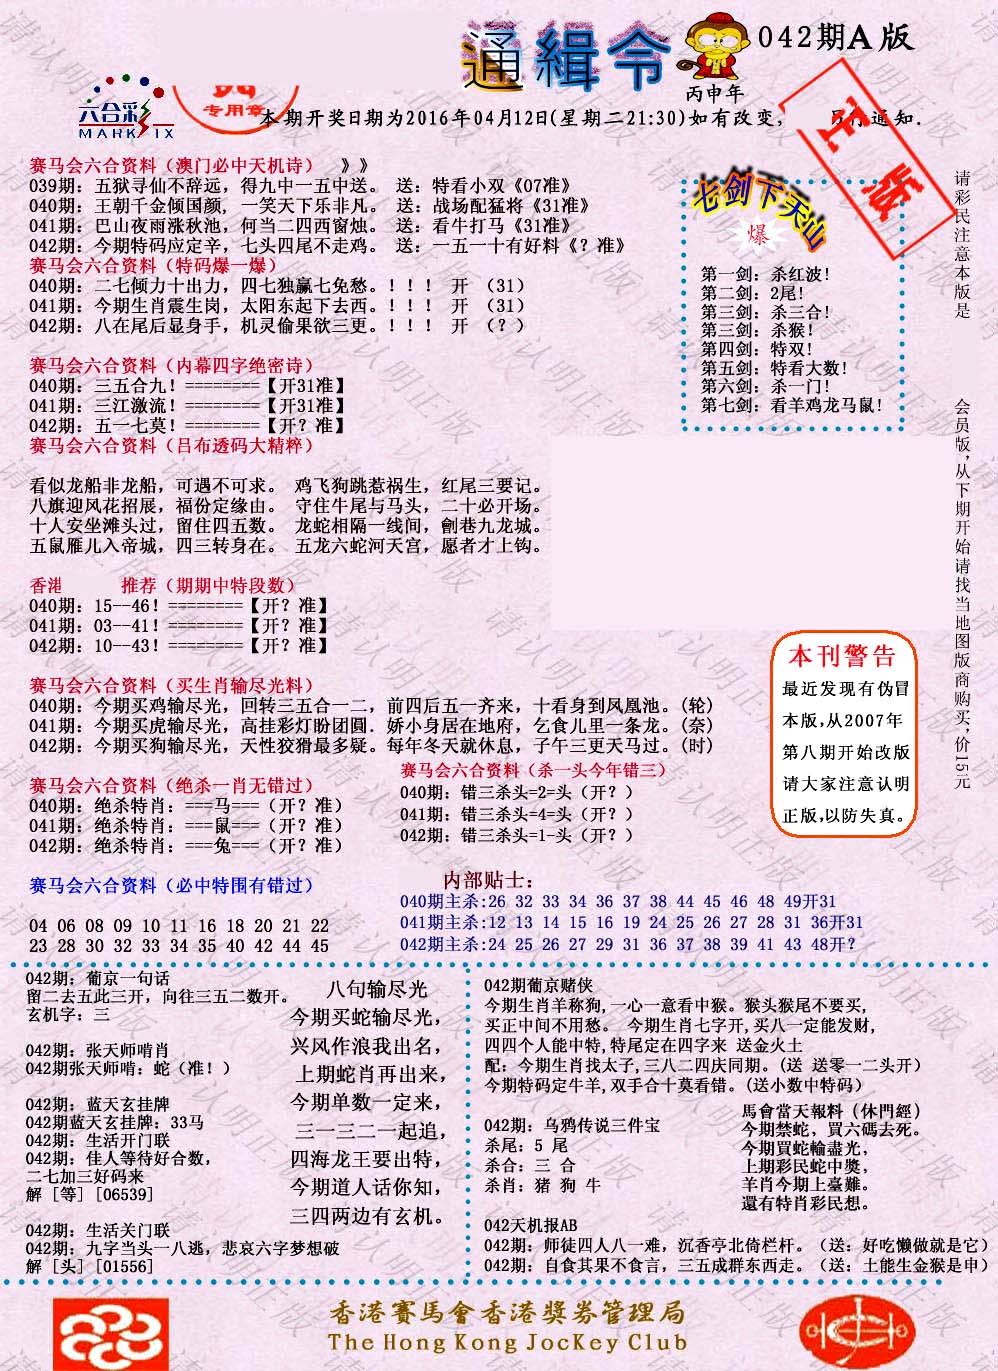 通緝令
042期A版
丙申年
六合彩
MARK SIX
专用章
正版
本期开奖日期为2016年04月12日(星期二21:30)如有改变, 另行通知.
赛马会六合资料（澳门必中天机诗） 》》
039期：五狱寻仙不辞远，得九中一五中送。 送：特看小双《07准》
040期：王朝千金倾国颜，一笑天下乐非凡。 送：战场配猛将《31准》
041期：巴山夜雨涨秋池，何当二四西窗烛。 送：看牛打马《31准》
042期：今期特码应定辛，七头四尾不走鸡。 送：一五一十有好料《？准》
赛马会六合资料（特码爆一爆）
040期：二七倾力十出力，四七独赢七免愁。！！！ 开 （31）
041期：今期生肖震生岗，太阳东起下去西。！！！ 开 （31）
042期：八在尾后显身手，机灵偷果欲三更。！！！ 开 （？）
赛马会六合资料（内幕四字绝密诗）
040期：三五合九！========【开31准】
041期：三江激流！========【开31准】
042期：五一七莫！========【开？准】
赛马会六合资料（吕布透码大精粹）
看似龙船非龙船，可遇不可求。 鸡飞狗跳惹祸生，红尾三要记。
八旗迎风花招展，福份定缘由。 守住牛尾与马头，二十必开场。
十人安坐滩头过，留住四五数。 龙蛇相隔一线间，劊巷九龙城。
五鼠雁儿入帝城，四三转身在。 五龙六蛇河天宫，愿者才上钩。
香港 推荐（期期中特段数）
040期：15--46！========【开？准】
041期：03--41！========【开？准】
042期：10--43！========【开？准】
赛马会六合资料（买生肖输尽光料）
040期：今期买鸡输尽光，回转三五合一二，前四后五一齐来，十看身到凤凰池。(轮)
041期：今期买虎输尽光，高挂彩灯盼团圆．娇小身居在地府，乞食儿里一条龙。(奈)
042期：今期买狗输尽光，天性狡猾最多疑。每年冬天就休息，子午三更天马过。(时)
赛马会六合资料（绝杀一肖无错过）
040期：绝杀特肖：===马===（开？准）
041期：绝杀特肖：===鼠===（开？准）
042期：绝杀特肖：===兔===（开？准）
赛马会六合资料（杀一头今年错三）
040期：错三杀头=2=头（开？）
041期：错三杀头=4=头（开？）
042期：错三杀头=1-头（开？）
赛马会六合资料（必中特围有错过）
04 06 08 09 10 11 16 18 20 21 22
23 28 30 32 33 34 35 40 42 44 45
内部贴士：
040期主杀:26 32 33 34 36 37 38 44 45 46 48 49开31
041期主杀:12 13 14 15 16 19 24 25 26 27 28 31 36开31
042期主杀:24 25 26 27 29 31 36 37 38 39 41 43 48开？
七剑下天山
爆
第一剑：杀红波！
第二剑：2尾！
第三剑：杀三合！
第三剑：杀猴！
第四剑：特双！
第五剑：特看大数！
第六剑：杀一门！
第七剑：看羊鸡龙马鼠！
请彩民注意本版是
会员版，从下期开始请找当地图版商购买，价15元
本刊警告
最近发现有伪冒
本版,从2007年
第八期开始改版
请大家注意认明
正版,以防失真。
042期：葡京一句话
留二去五此三开，向往三五二数开。
玄机字：三
042期：张天师啃肖
042期张天师啃：蛇（准！）
042期：蓝天玄挂牌
042期蓝天玄挂牌：33马
042期：生活开门联
042期：佳人等待好合数，
二七加三好码来
解［等］[06539]
042期：生活关门联
042期：九字当头一八逃，悲哀六字梦想破
解［头］[01556]
八句输尽光
今期买蛇输尽光，
兴风作浪我出名，
上期蛇肖再出来，
今期单数一定来，
三一三二一起追，
四海龙王要出特，
今期道人话你知，
三四两边有玄机。
042期葡京赌侠
今期生肖羊称狗,一心一意看中猴。猴头猴尾不要买,
买正中间不用愁。 今期生肖七字开,买八一定能发财,
四四个人能中特,特尾定在四字来 送金火土
配：今期生肖找太子,三八二四庆同期。(送 送零一二头开）
今期特码定牛羊,双手合十莫看错。(送小数中特码）
042期：乌鸦传说三件宝
杀尾：5 尾
杀合：三 合
杀肖：猪 狗 牛
馬會當天報料（休門經）
今期禁蛇，買六碼去死。
今期買蛇輸盡光，
上期彩民蛇中獎，
羊肖今期上臺難。
還有特肖彩民想。
042天机报AB
042期：师徒四人八一难，沉香亭北倚栏杆。（送：好吃懒做就是它）
042期：自食其果不食言，三五成群东西走。（送：土能生金猴是申）
香港賽馬會香港獎券管理局
The Hong Kong Jockey Club